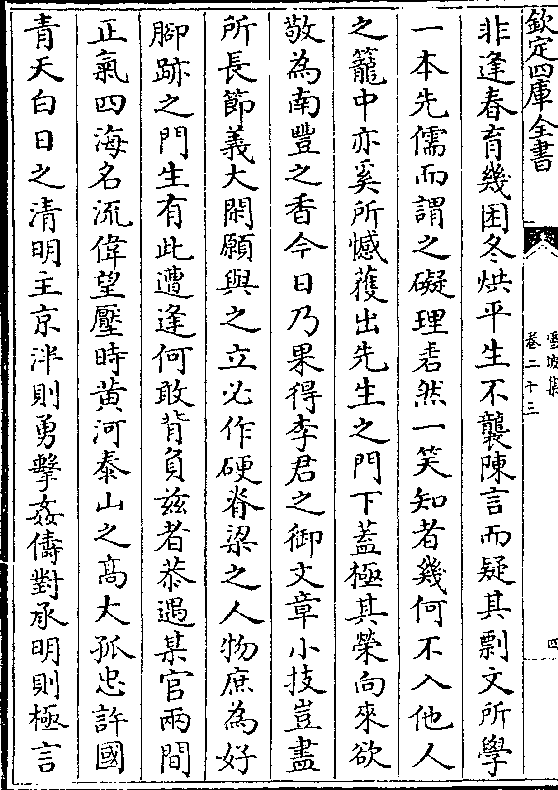 欽定四庫全書
雪坡集
卷二十三
四
非逢春育幾困冬烘平生不襲陳言而疑其剽文所學
一本先儒而謂之礙理𠩄然一笑知者幾何不入他人
之籠中亦奚所憾獲出先生之門下蓋極其榮向來欲
敬為南豐之香今日乃果得李君之御文章小技豈盡
所長節義大閑願與之立必作硬脊梁之人物庶為好
腳跡之門生有此遭逢何敢背負兹者恭遇某官兩間
正氣四海名流偉望壓時黄河泰山之高大孤忠許國
青天白日之清明主京泮則勇擊姦儔對承明則極言